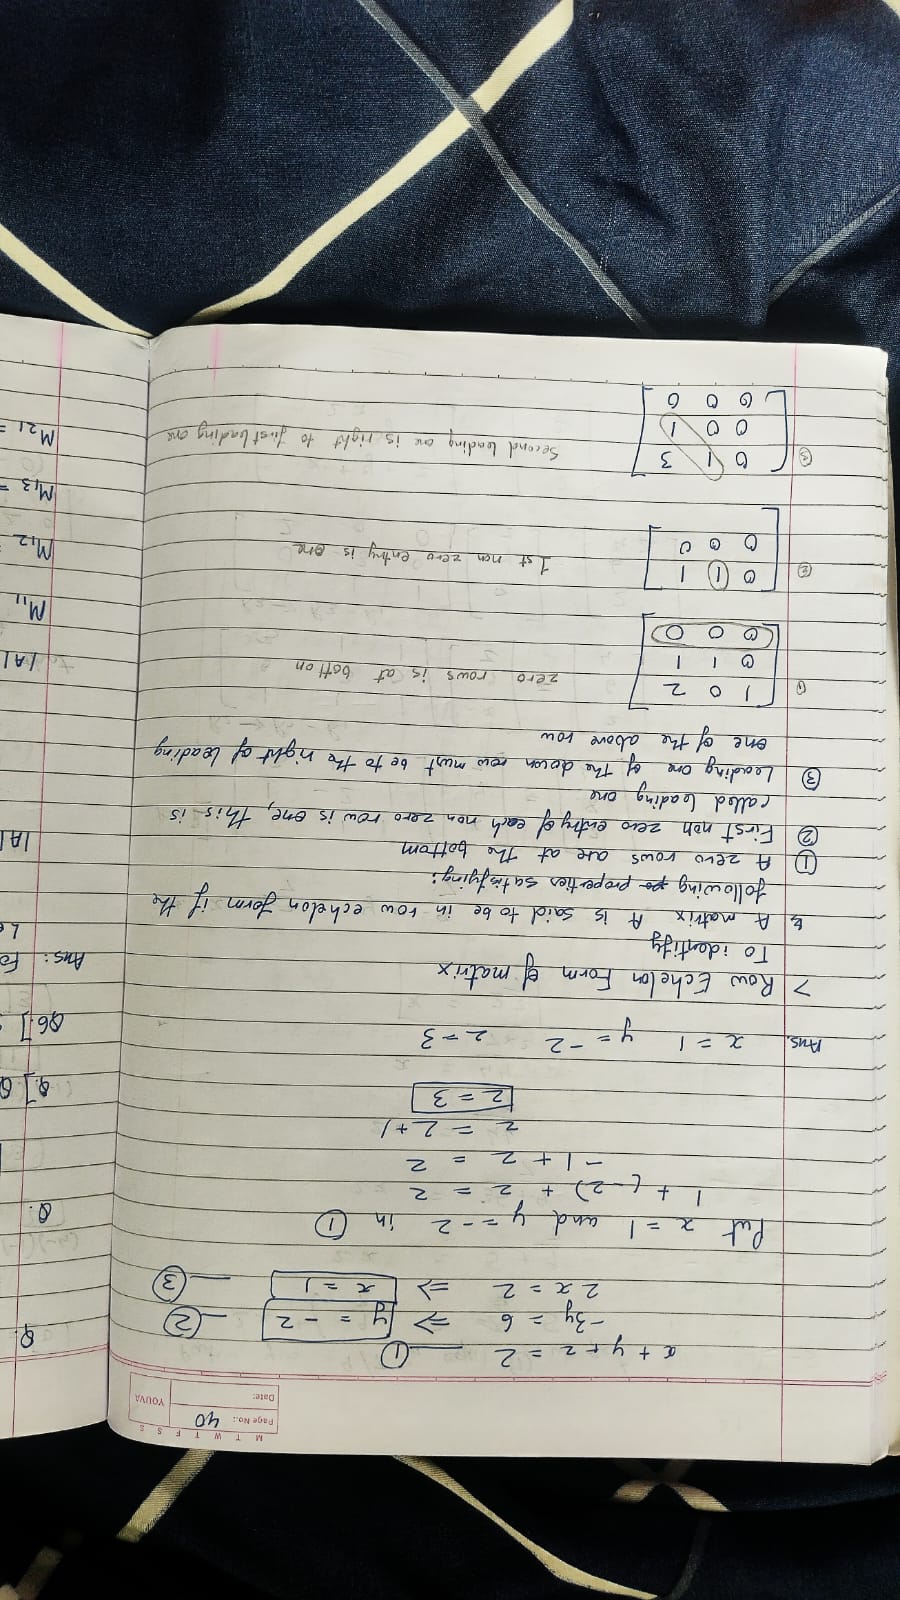 M T W T F S S
Page No.: 40
Date:
YOUVA
x + y + z = 2 ——①
-3y = 6 => y = -2 —②
2x = 2 => x = 1 —③
Put x = 1 and y = -2 in ①
1 + (-2) + z = 2
-1 + z = 2
z = 2+1
z = 3
Ans. x = 1 y = -2 z = 3
> Row Echelon Form of matrix
To identify
A matrix A is said to be in row echelon form if the
following properties satisfying:
① A zero rows are at the bottom
② First non zero entry of each non zero row is one, this is
called leading one
③ Leading one of the down row must be to the right of leading
one of the above row
① [ 1 0 2 ]
0 1 1
0 0 0
zero rows is at botton
② [ 0 1 1 ]
0 0 0
1st non zero entry is one
③ [ 0 1 3 ]
0 0 1
0 0 0
Second leading one is right to first leading one
Q.
Q.
Q.]
Q6.]
Ans: Fo
Le
|A|
|A|
M11
M12
M13 =
M21 =